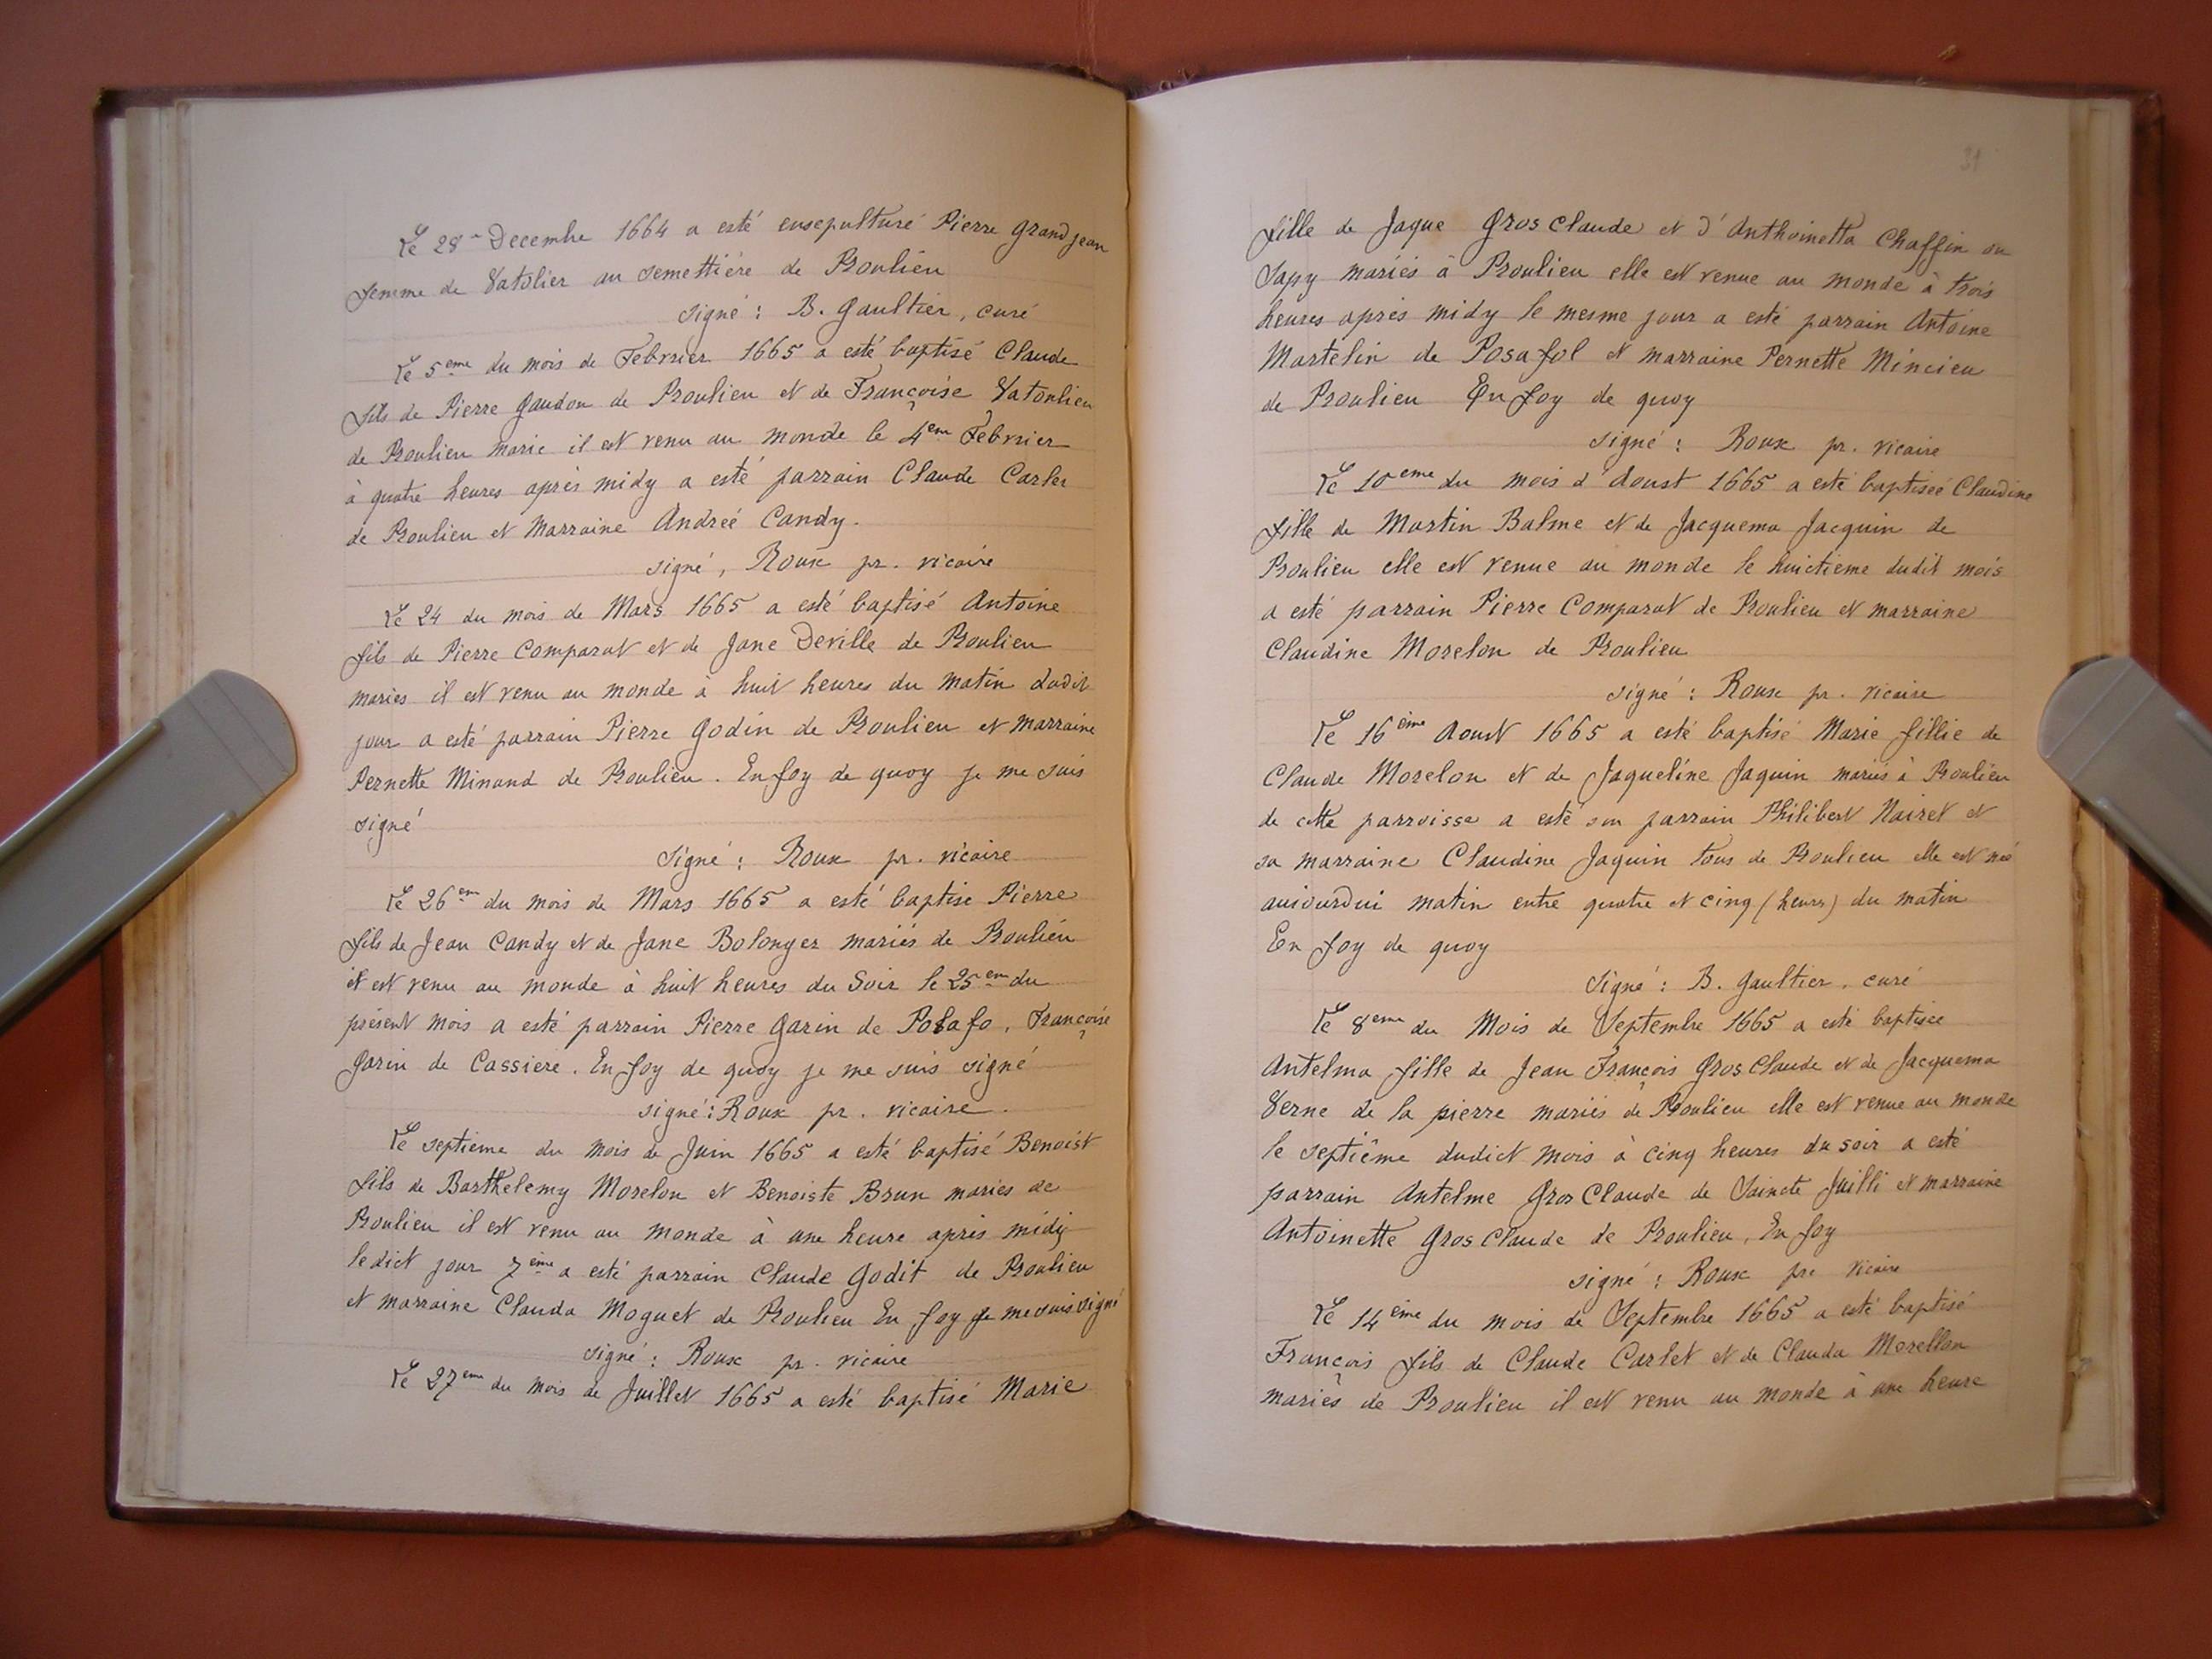 Le 28e Decembre 1664 a esté ensepulturé Pierre Grand jean
femme de Vatolier au semettière de Proulieu
signé : B. Gaultier, curé
Le 5eme du mois de Febvrier 1665 a esté baptisé Claude
fils de Pierre Gaudon de Proulieu et de Françoise Vatonlieu
de Proulieu marie il est venu au monde le 4em Febvrier
à quatre heures après midy a esté parrain Claude Carlet
de Proulieu et Marraine Andreé Candy.
signé, Roux pr. vicaire
Le 24 du mois de Mars 1665 a esté baptisé Antoine
fils de Pierre Comparat et de Jane Deville de Proulieu
maries il est venu au monde à huit heures du matin dudit
jour a esté parrain Pierre Godin de Proulieu et marraine
Pernette Minand de Proulieu. En foy de quoy je me suis
signé
Signé : Roux pr. vicaire
Le 26em du mois de Mars 1665 a esté baptise Pierre
fils de Jean Candy et de Jane Bolonyer mariés de Proulieu
il est venu au monde à huit heures du Soir le 25em du
présent mois a esté parrain Pierre Garin de Posafo, Françoise
Garin de Cassiere. En foy de quoy je me suis signé
signé : Roux pr. vicaire.
Le septieme du mois de Juin 1665 a esté baptisé Benoist
fils de Barthelemy Morelon et Benoiste Brun maries de
Proulieu il est venu au monde à une heure après midy
ledict jour 7ème a esté parrain Claude Godit de Proulieu
et marraine Clauda Moguet de Proulieu En foy je me suis signé
signé : Roux pr. vicaire
Le 27eme du mois de Juillet 1665 a esté baptisé Marie
31
fille de Jaque Gros Claude et d'Anthoinetta Chaffin ou
Sapy mariés à Proulieu elle est venue au monde à trois
heures après midy le mesme jour a esté parrain Antoine
Martelin de Posafol et marraine Pernette Mincieu
de Proulieu En foy de quoy
signé : Roux pr. vicaire
Le 10eme du mois d'Aoust 1665 a esté baptiseé Claudine
fille de Martin Balme et de Jacquema Jacquin de
Proulieu elle est venue au monde le huictieme dudit mois
a esté parrain Pierre Comparat de Proulieu et marraine
Claudine Morelon de Proulieu
signé : Roux pr. vicaire
Le 16ème Aoust 1665 a esté baptisé Marie fillie de
Claude Morelon et de Jaqueline Jaquin mariés à Proulieu
de cette parroisse a esté son parrain Philibert Nairet et
sa marraine Claudine Jaquin tous de Proulieu elle est née
auiourdui matin entre quatre et cinq (heures) du matin
En foy de quoy
Signé : B. Gaultier, curé
Le 8eme du Mois de Septembre 1665 a esté baptisee
Antelma fille de Jean François Gros Claude et de Jacquema
Verne de la pierre mariés de Proulieu elle est venue au monde
le septième dudict mois à cinq heures du soir a esté
parrain Antelme Gros Claude de Saincte Juilli et marraine
Antoinette Gros Claude de Proulieu, En foy
signé : Roux pre vicaire
Le 14ème du mois de Septembre 1665 a esté baptisé
François fils de Claude Carlet et de Clauda Morellon
mariés de Proulieu il est venu au monde à une heure